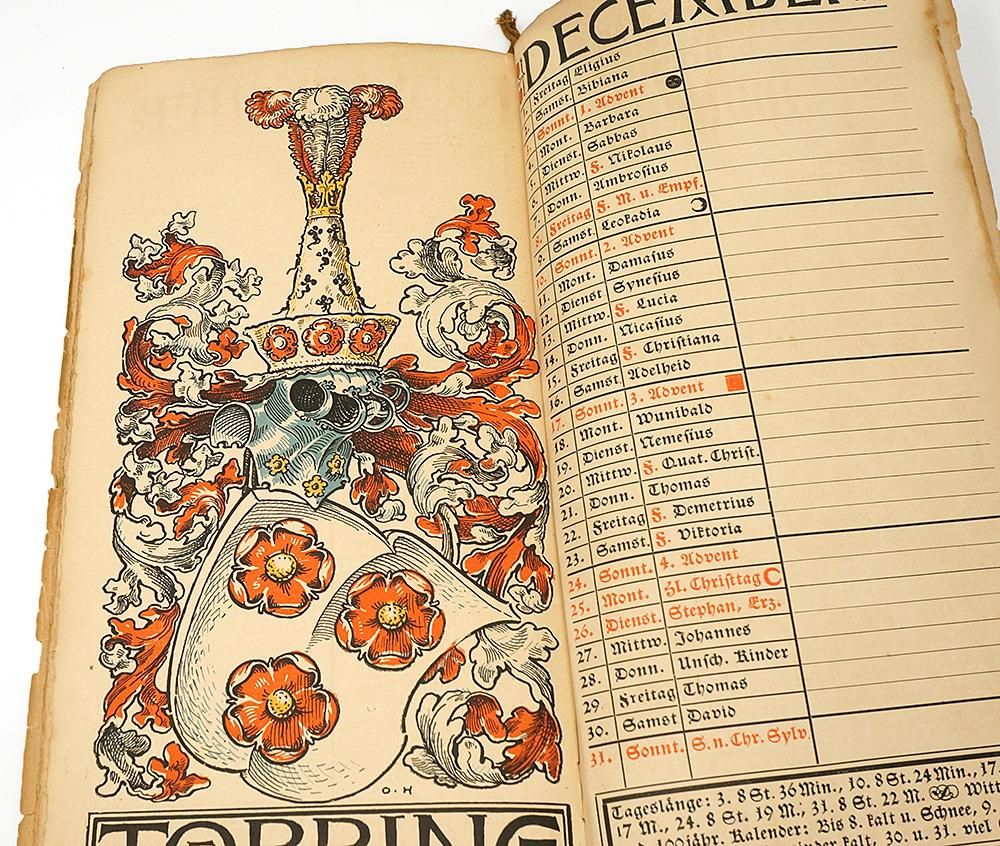 O·H
TORRING
DECEMBER
Freitag Eligius
2. Samst. Bibiana
Sonnt. 1. Advent
4. Mont. Barbara
5. Dienst. Sabbas
6. Mittw. F. Nikolaus
7. Donn. Ambrosius
8. Freitag F. M. u. Empf.
9. Samst. Leokadia
10. Sonnt. 2. Advent
11. Mont. Damasus
12. Dienst Synesius
13. Mittw. F. Lucia
14. Donn. Nicasius
15. Freitag F. Christiana
16. Samst. Adelheid
17. Sonnt. 3. Advent
18. Mont. Wunibald
19. Dienst. Nemesius
20. Mittw. F. Quat. Christ.
21. Donn. Thomas
22. Freitag F. Demetrius
23. Samst. F. Viktoria
24. Sonnt. 4. Advent
25. Mont. Hl. Christtag
26. Dienst. Stephan, Erz.
27. Mittw. Johannes
28. Donn. Unsch. Kinder
29 Freitag Thomas
30. Samst David
31. Sonnt. S. n. Chr. Sylv.
Tageslänge: 3. 8 St. 36 Min., 10. 8 St. 24 Min., 17.
17 M., 24. 8 St. 19 M., 31. 8 St. 22 M. Witt
100jähr. Kalender: Bis 8. kalt u. Schnee, 9.
kalt, 30. u. 31. viel